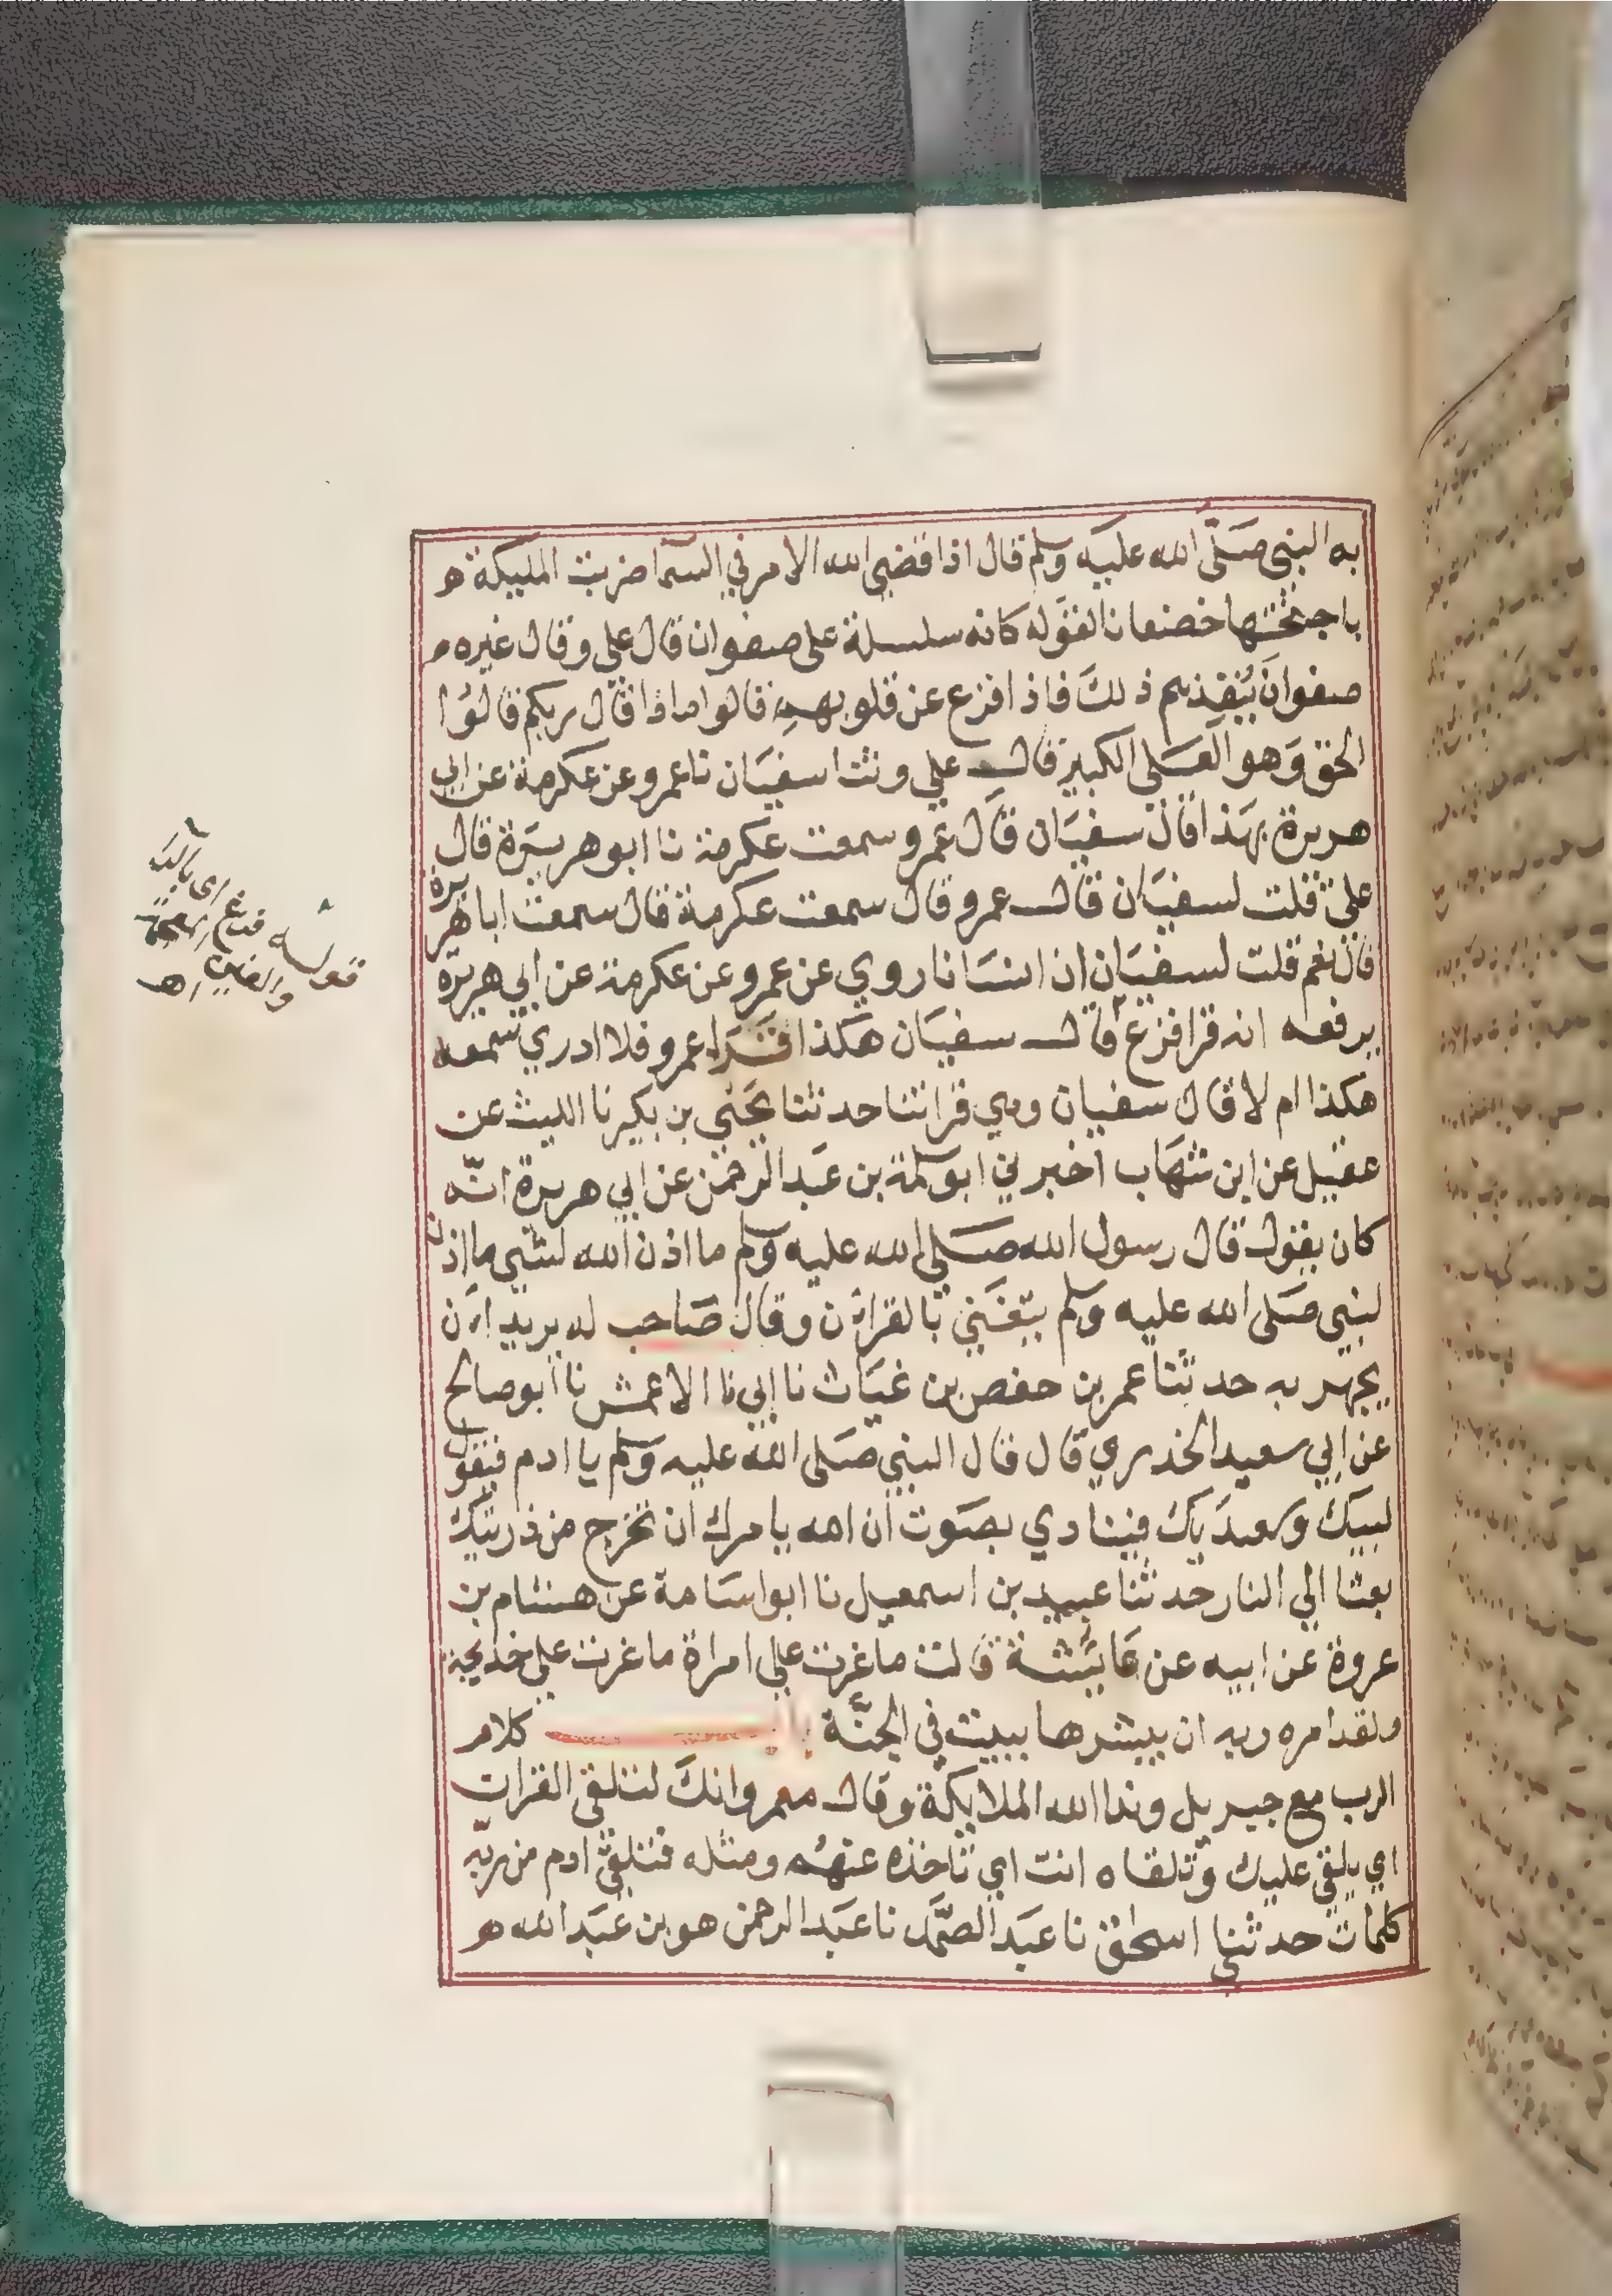 به النبي صلى الله عليه وسلم قال اذا قضي الله الامر في السما ضربت المليكة
باجنحتها خضعانا لقوله كانه سلسلة على صفوان قال علي وقال غيره
صفوان ينفذهم ذلك فاذا فزع عن قلوبهم قالوا ماذا قال ربكم قالوا
الحق وهو العلي الكبير قال علي وثنا سفيان نا عمرو عن عكرمة عن ابي
هريرة بهذا قال سفيان قال عمرو سمعت عكرمة نا ابو هريرة قال
علي قلت لسفيان قال عمرو قال سمعت عكرمة قال سمعت ابا هريرة
قال نعم قلت لسفيان ان انسانا روي عن عمرو عن عكرمة عن ابي هريرة
يرفعه انه قرا فزع قال سفيان هكذا قرا عمرو فلا ادري سمعه
هكذا ام لا قال سفيان وهي قراتنا حدثنا يحيى بن بكير نا الليث عن
عقيل عن ابن شهاب اخبرني ابو سلمة بن عبد الرحمن عن ابي هريرة انه
كان يقول قال رسول الله صلي الله عليه وسلم ما اذن الله لشي ما اذن
لنبي صلى الله عليه وسلم يتغني بالقران وقال صاحب له يريد ان
يجهر به حدثنا عمر بن حفص بن غياث نا ابي نا الاعمش نا ابو صالح
عن ابي سعيد الخدري قال قال النبي صلى الله عليه وسلم يا ادم فيقول
لبيك وسعديك فينادي بصوت ان الله يامرك ان تخرج من ذريتك
بعثا الي النار حدثنا عبيد بن اسمعيل نا ابو اسامة عن هشام بن
عروة عن ابيه عن عايشة قالت ما غرت علي امراة ما غرت علي خديجة
ولقد امره ربه ان يبشرها ببيت في الجنة باب كلام
الرب مع جبريل وندا الله الملايكة وقال معمر وانك لتلقي القران
اي يلقي عليك وتلقاه انت اي تاخذه عنهم ومثله فتلقي ادم من ربه
كلمات حدثني اسحق نا عبد الصمد نا عبد الرحمن هو بن عبد الله
قوله فرغ اي بالراء
المعجمة
والغين اهـ